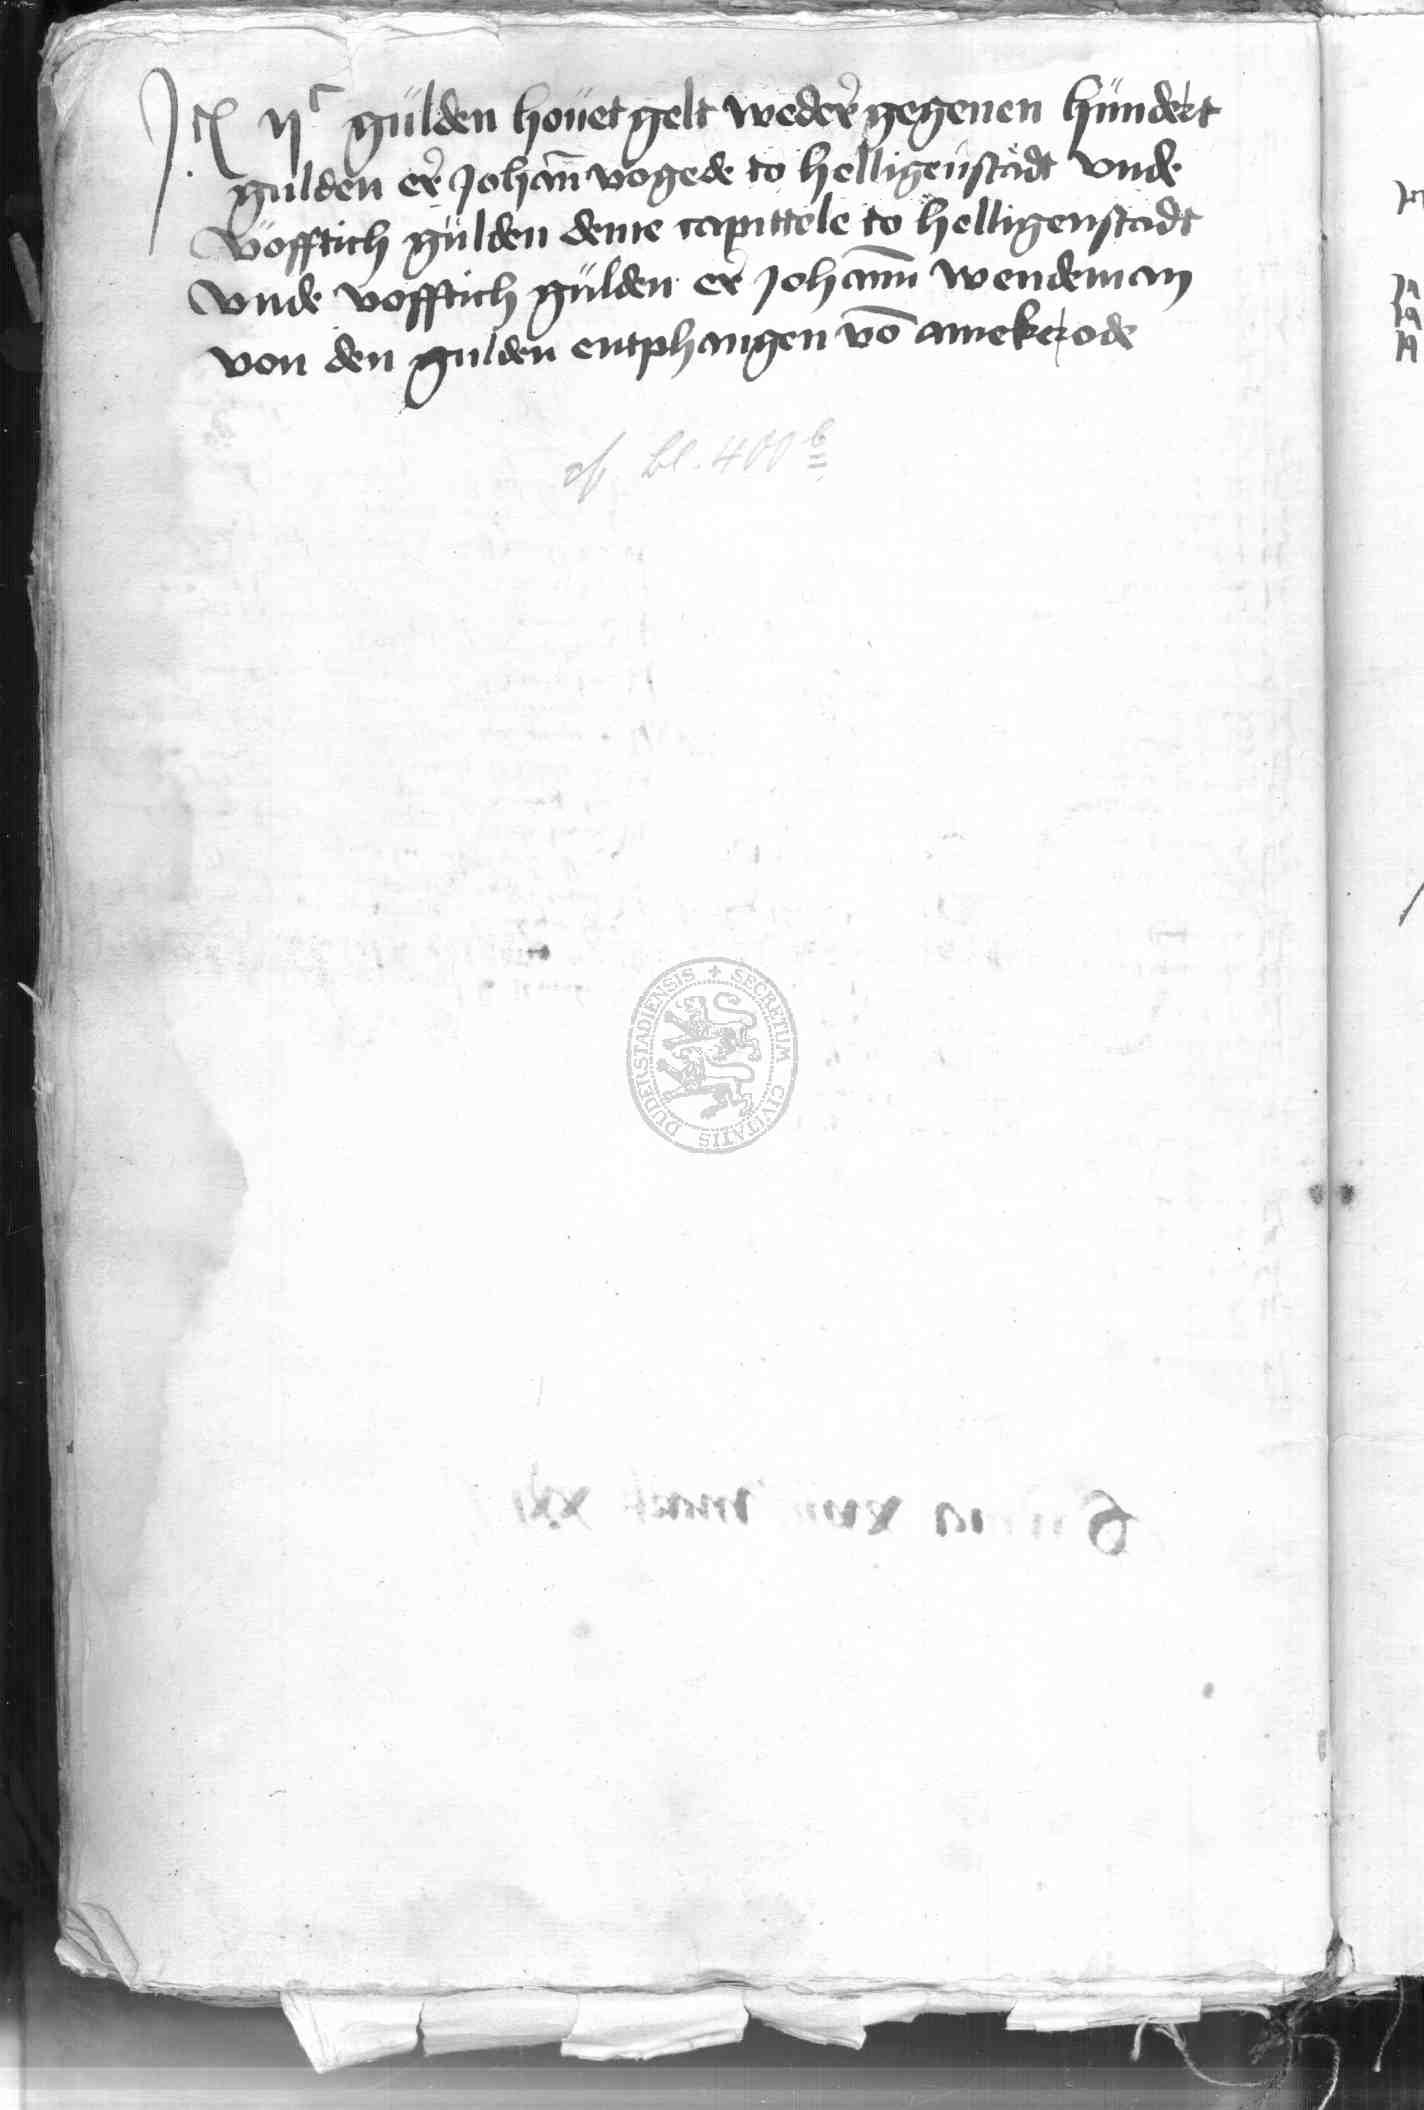 It(em) ijᶜ gülden höuet gelt weder gegeuen hündert
gulden er̄ Johan̄ vogede to helligenstadt vnde
vöfftich gülden deme capittele to helligenstadt
vnde vofftich gülden er̄ Johan̄n wendeman
von den gulden entphangen vō amekerode
cf. bl. 400ᵇ
DUDERSTADIENSIS + SECRETUM CIVITATIS